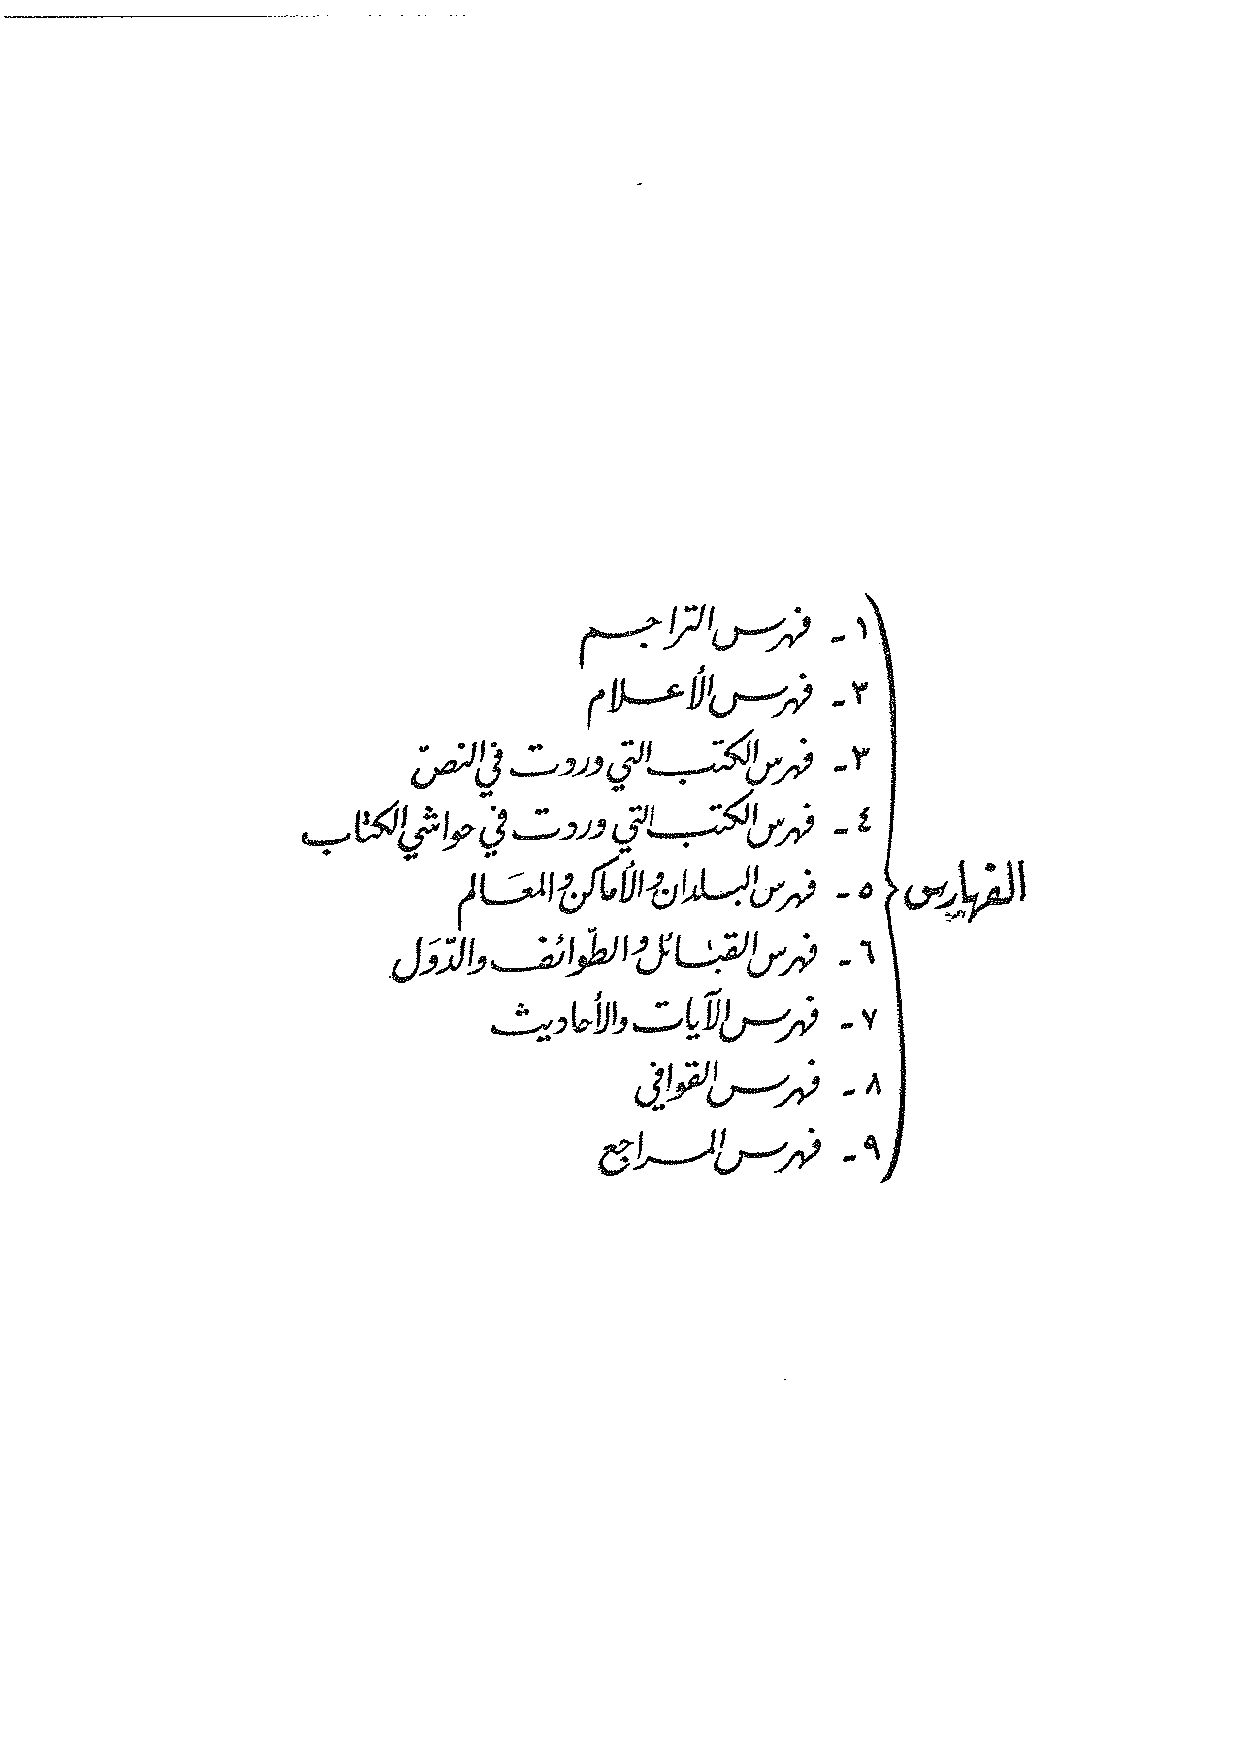 الفهارس
١- فهرس التراجم
٢- فهرس الأعلام
٣- فهرس الكتب التي وردت في النصّ
٤- فهرس الكتب التي وردت في حواشي الكتاب
٥- فهرس البلدان والأماكن والمعَالم
٦- فهرس القبائل والطّوائف والدّوَل
٧- فهرس الآيات والأحاديث
٨- فهرس القوافي
٩- فهرس المراجع